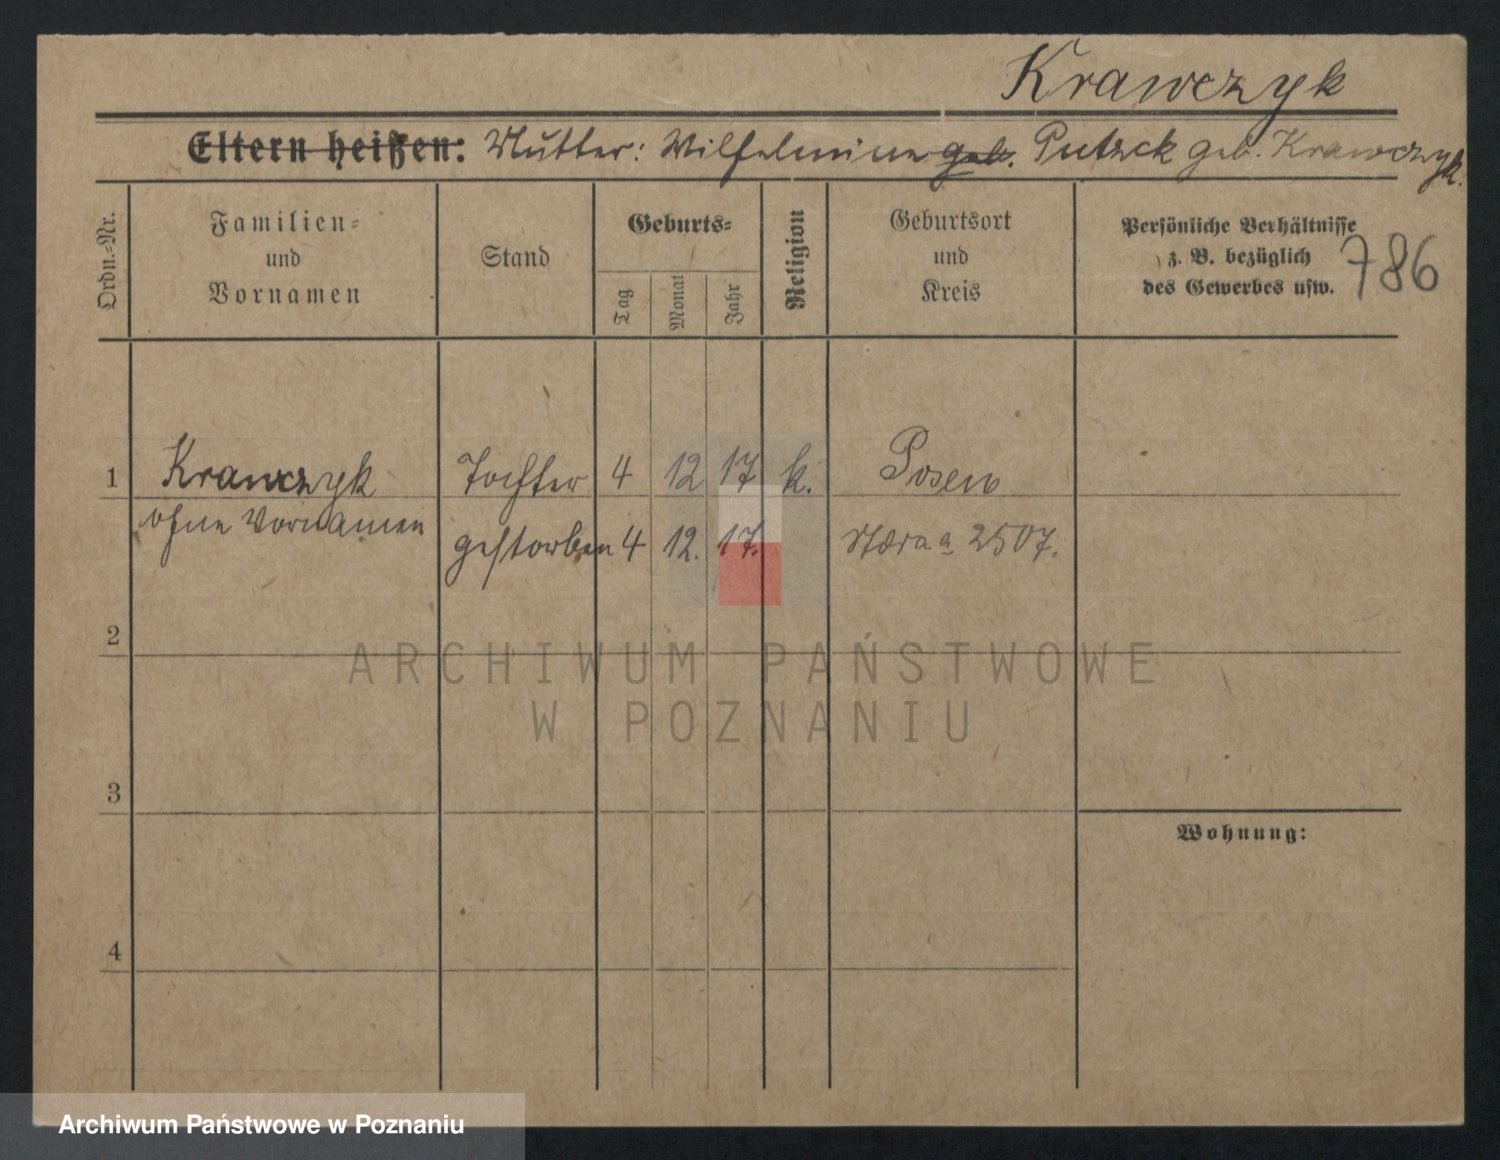 Krawczyk
Eltern heißen: Mutter: Wilhelmine geb. Putzck geb. Krawczyk.
Ordn.=Nr.
Familien=
und
Vornamen
Stand
Geburts=
Tag
Monat
Jahr
Religion
Geburtsort
und
Kreis
Persönliche Verhältnisse
z. B. bezüglich
des Gewerbes usw.
786
1 Krawczyk Tochter 4 12 17 k. Posen
ohne Vornamen gestorben 4 12. 17. 2507.
2
3
4
Wohnung:
ARCHIWUM PAŃSTWOWE
W POZNANIU
Archiwum Państwowe w Poznaniu